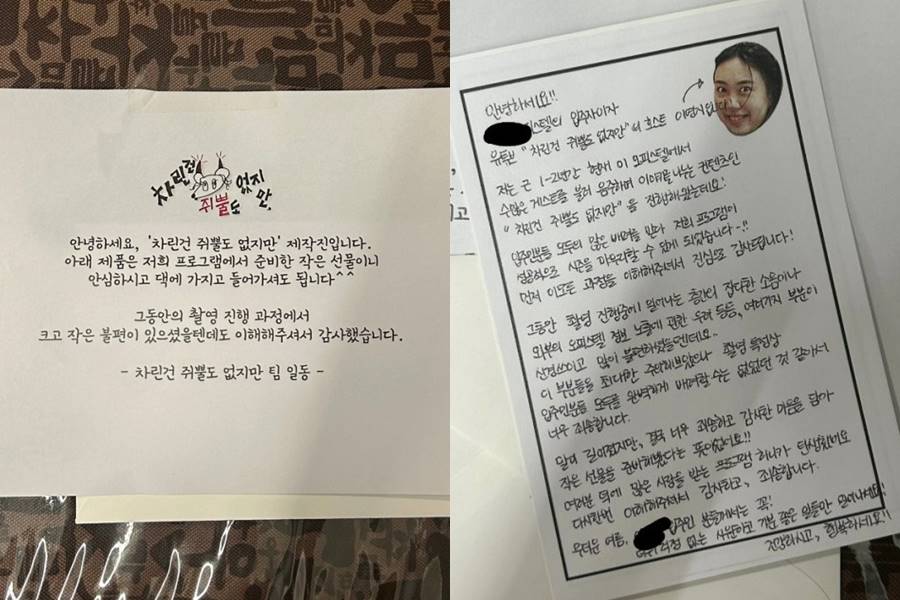 차린건
쥐뿔도
없지만
안녕하세요, '차린건 쥐뿔도 없지만' 제작진입니다.
아래 제품은 저희 프로그램에서 준비한 작은 선물이니
안심하시고 댁에 가지고 들어가셔도 됩니다^^
그동안의 촬영 진행 과정에서
크고 작은 불편이 있으셨을텐데도 이해해주셔서 감사했습니다.
- 차린건 쥐뿔도 없지만 팀 일동 -
안녕하세요!!
피스텔의 입주자이자
유튜브 "차린건 쥐뿔도 없지만"의 호스트 이영지입니다
저는 근 1-2년간 현재 이 오피스텔에서
수많은 게스트를 불러 음주하며 이야기 나누는 컨텐츠인
"차린건 쥐뿔도 없지만"을 진행해왔는데요!
입주민분들 모두의 많은 배려를 받아 저희 프로그램이
성공적으로 시즌을 마무리할 수 있게 되었습니다-!!
먼저 이 모든 과정을 이해해주셔서 진심으로 감사드립니다!
그동안 촬영 진행중에 일어나는 층간의 잡다한 소음이나
외부의 오피스텔 정보 노출에 관한 우려 등등, 여러가지 부분이
신경쓰이고 많이 불편하셨을텐데요..
이 부분들을 최대한 주의해보았으나 촬영 특성상
입주민분들 모두를 완벽하게 배려할 수는 없었던 것 같아서
너무 죄송합니다.
말이 길어졌지만, 결국 너무 죄송하고 감사한 마음을 담아
작은 선물을 준비해봤다는 뜻이에요!!
여러분 덕에 많은 사랑을 받는 프로그램 하나가 탄생했네요
다시한번 이해해주셔서 감사하고, 죄송합니다.
무더운 여름, 입주민 분들께서는 꼭!
걱정 없는 시원하고 기분 좋은 일들만 일어나세요!
건강하시고, 행복하세요!!